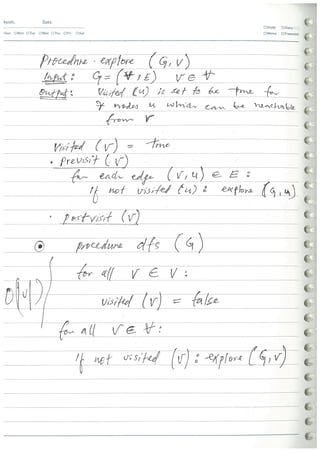 Date
Procedure explore (G, V)
Input: G = (V, E) V ∈ V
Output: Visited (u) is set to be true for
nodes u which can be reachable
from V
Visited (V) = true
• previsit (V)
for each edge (V, u) ∈ E:
If not visited (u): explore (G, u)
• postvisit (V)
procedure dfs (G)
for all V ∈ V:
O(|V|)
visited (V) = false
for all V ∈ V:
If not visited (V): explore (G, V)